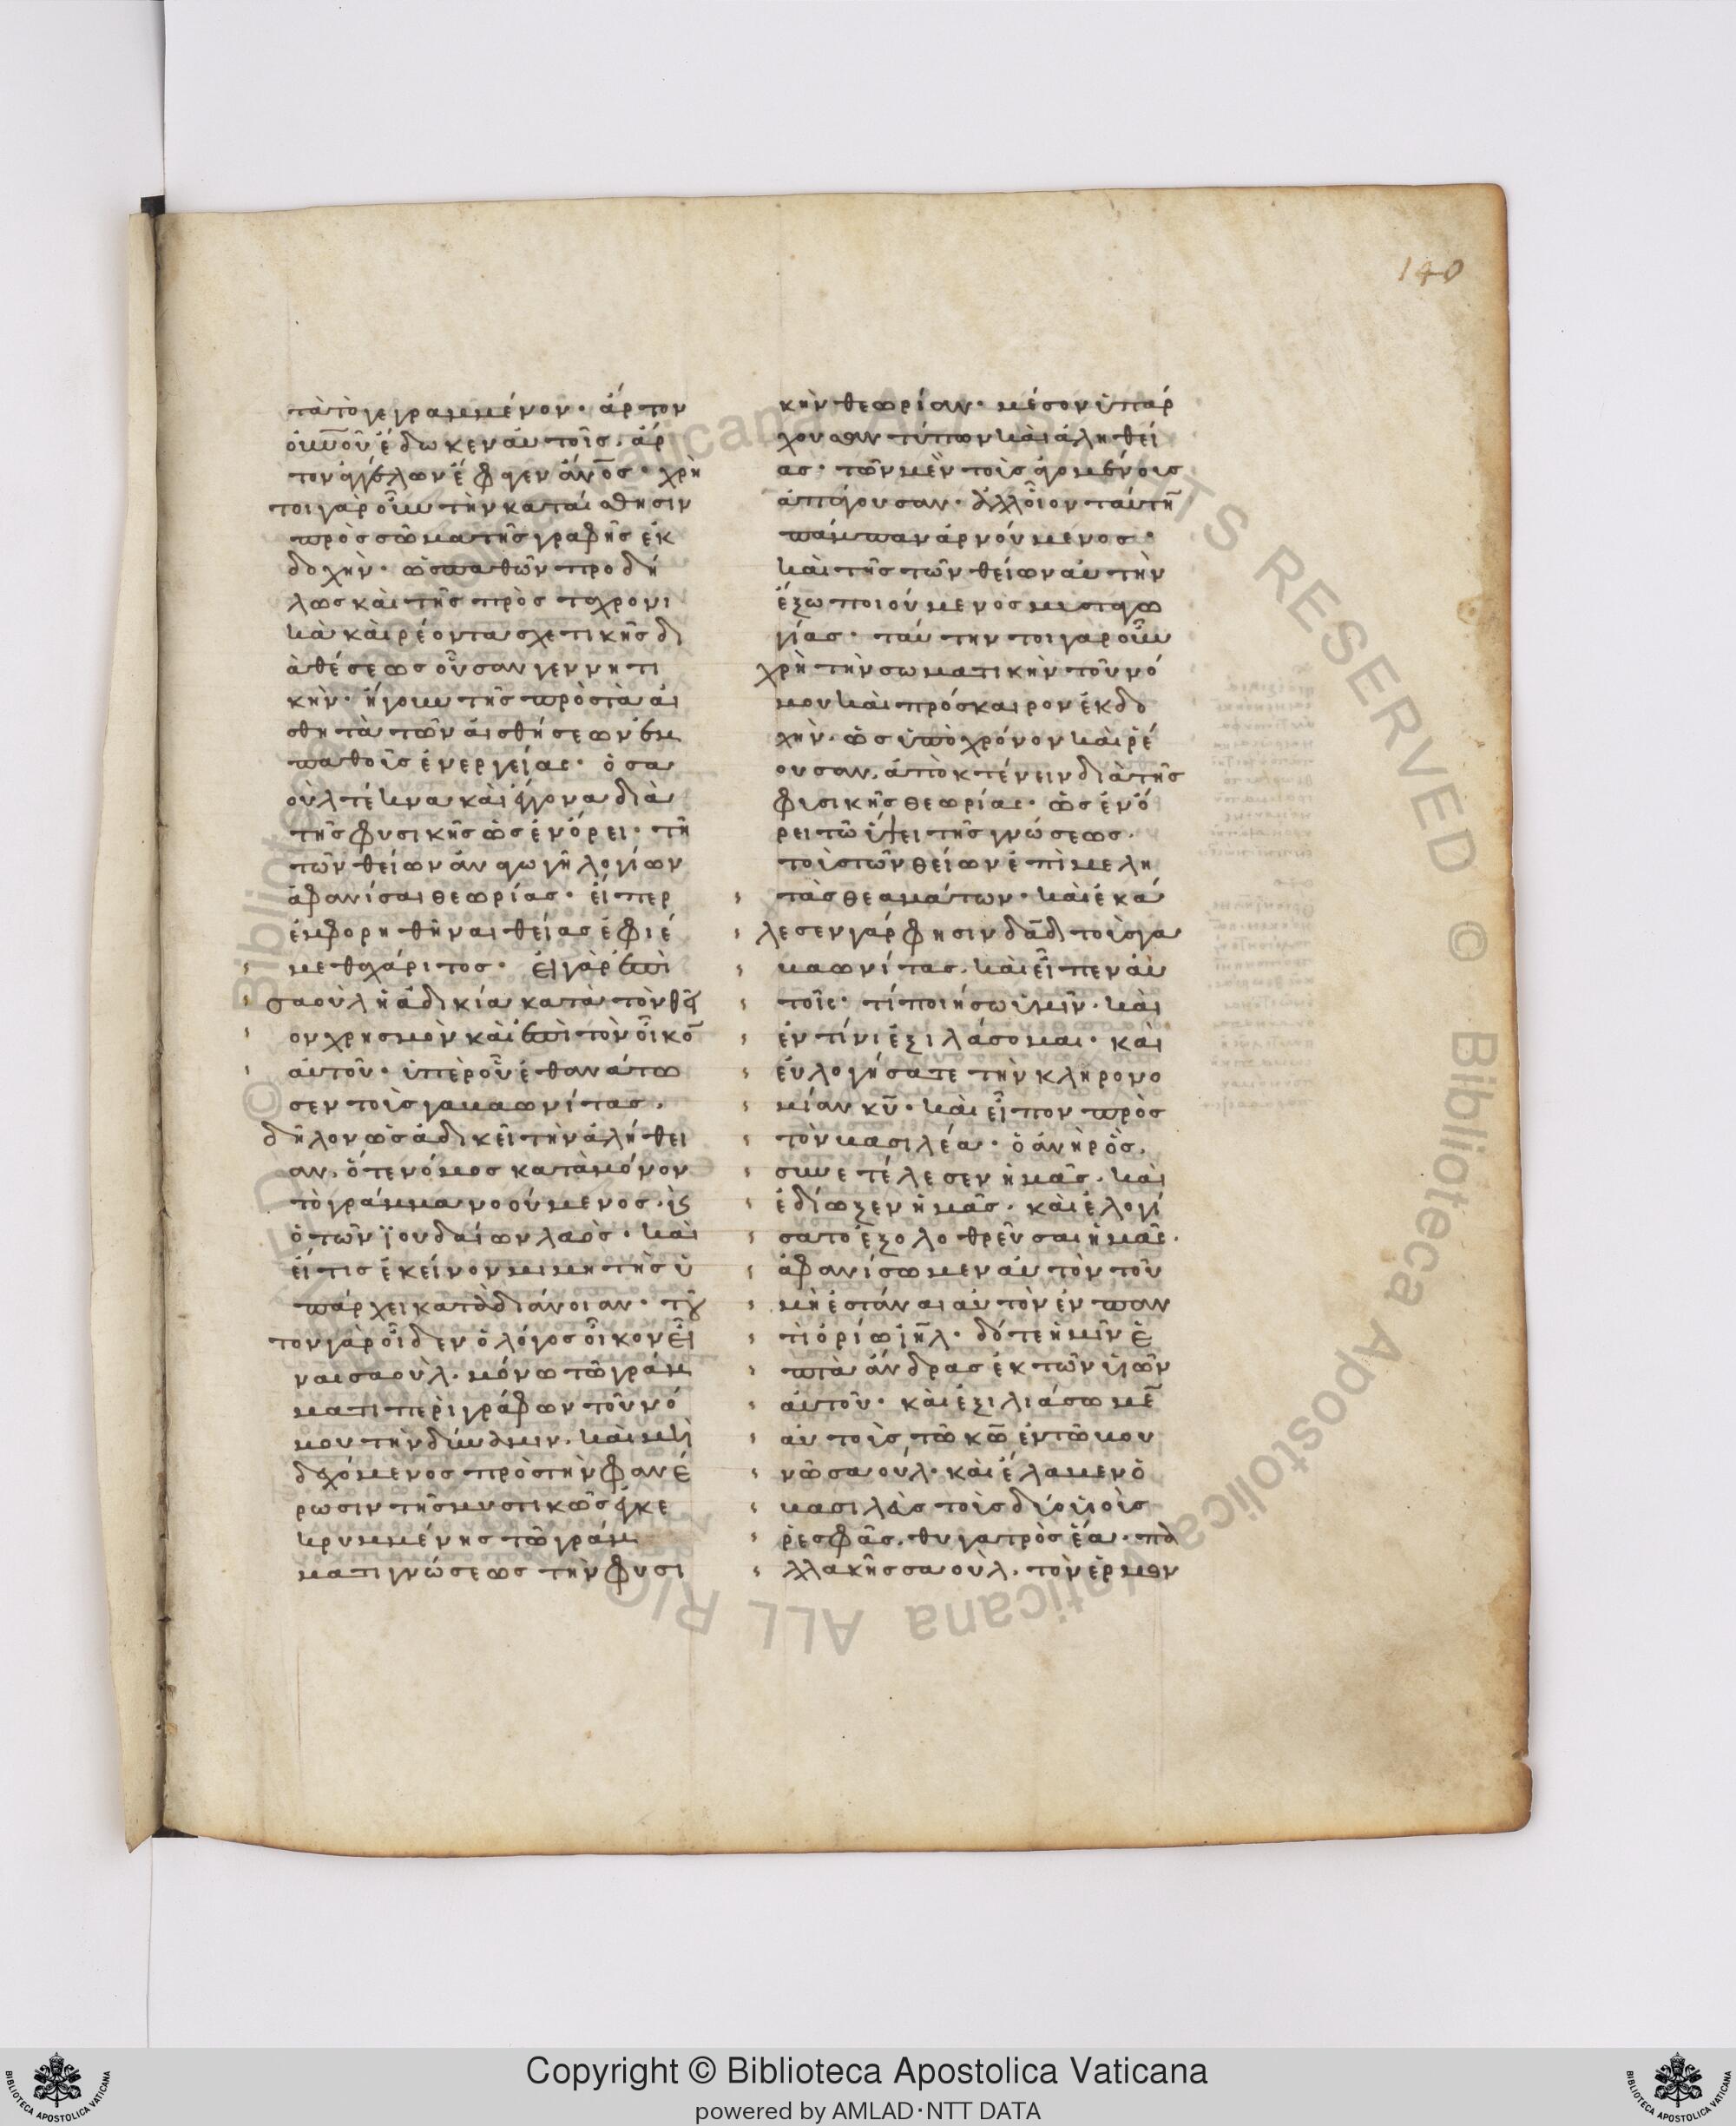 140
τὰ τὸ γεγραμμένον· ἄρτον
οὐ(ρα)νοῦ ἔδωκεν αὐτοῖς. ἄρ
τον ἀγγέλων ἔφαγεν ἄν(θρωπ)ος· χρὴ
τοιγαροῦν τὴν κατ' αἴσθησιν
πρὸς σῶμα τῆς γραφῆς ἐκ
δοχὴν· ὡς παθῶν προδή
λως καὶ τῆς πρὸς τὰ χρονι
κὰ καὶ ρέοντα σχετικῆς δι
αθέσεως οὖσαν γεννητι
κὴν· ἤγουν τῆς πρὸς τὰ αἰ
σθητὰ τῶν αἰσθήσεων ἐμ
παθοῦς ἐνεργείας· ὁ σα
οὺλ τέκνα καὶ ἔγγονα διὰ
τῆς φυσικῆς ὡς ἐν ὄρει· τῇ
τῶν θείων ἀναγωγῇ λογίων
ἀφανίσαι θεωρίας· εἴπερ
ἐμφορηθῆναι θείας ἐφιέ
μεθα χάριτος· εἰ γὰρ ἐπὶ
σαοὺλ ἡ ἀδικία κατὰ τὸν θεῖ
ον χρησμὸν καὶ ἐπὶ τὸν οἶκο̄
αὐτοῦ· ὑπὲρ οὗ ἐθανάτω
σεν τοὺς γαβαωνίτας.
δῆλον ὡς ἀδικεῖ τὴν ἀλήθει
αν. ὅ τε νόμος κατὰ μόνον
τὸ γράμμα νοούμενος.
ὁ τῶν ἰουδαίων λαὸς· καὶ
εἴ τις ἐκείνων μιμητὴς ὑ
πάρχει κατὰ διάνοιαν·
τον γὰρ οἶδεν ὁ λόγος οἶκον εἶ
ναι σαοὺλ. μόνω τῶ γράμ
ματι περιγράφων τοῦ νό
μου τὴν δύναμιν. καὶ μὴ
δεχόμενος πρὸς τὴν φανέ
ρωσιν τῆς μυστικῶς ἐγκε
κρυμμένης τῶ γράμ
ματι γνώσεως τὴν φυσι
κὴν θεωρίαν· μέσον ὑπάρ
χουσαν τύπων καὶ ἀληθεί
ας· τῶν μὲν τοὺς ἀγομένους
ἀπάγουσαν·
πάμπαν ἀρνούμενος·
καὶ τῆς τῶν θείων αὐτὴν
ἔξω ποιούμενος μυσταγω
γίας· ταύτην τοιγαροῦν
χρὴ τὴν σωματικὴν τοῦ νό
μου καὶ πρόσκαιρον ἐκδο
χὴν. ὡς ὑπὸ χρόνον καὶ ρέ
ουσαν. ἀποκτένειν διὰ τῆς
φυσικῆς θεωρίας· ὡς ἐν ὄ
ρει τῶ ὕψει τῆς γνώσεως.
τοὺς τῶν θείων ἐπιμελη
τὰς θεαμάτων· καὶ ἐκά
λεσεν γάρ φησιν δα̅δ τοὺς γα
βαωνίτας. καὶ εἶπεν αὐ
τοῖς· τί ποιήσω ὑμῖν. καὶ
ἐν τίνι ἐξιλάσομαι· καὶ
εὐλογήσατε τὴν κληρονο
μίαν κ̅υ· καὶ εἶπον πρὸς
τὸν βασιλέα· ὁ ἀνὴρ ὃς.
συνετέλεσεν ἡμᾶς. καὶ
ἐδίωξεν ἡμᾶς· καὶ ἐλογί
σατο ἐξολοθρεῦσαι ἡμᾶς.
ἀφανίσωμεν αὐτὸν τοῦ
μὴ ἑστάναι αὐτὸν ἐν παν
τὶ ὁρίω ἰ̅η̅λ· δότε ἡμῖν ἑ
πτὰ ἄνδρας ἐκ τῶν υἱῶν
αὐτοῦ· καὶ ἐξιλιάσωμε̄
αὐτοὺς τῶ κ̅ω̅ ἐν τῶ βου
νῶ σαούλ· καὶ ἔλαβεν ὁ
βασιλεὺς τοὺς δύο υἱοὺς
ρεσφᾶς. θυγατρὸς ἀΐα· πα
λλακῆς σαοὺλ. τὸν ἑρμων
Copyright © Biblioteca Apostolica Vaticana
powered by AMLAD·NTT DATA